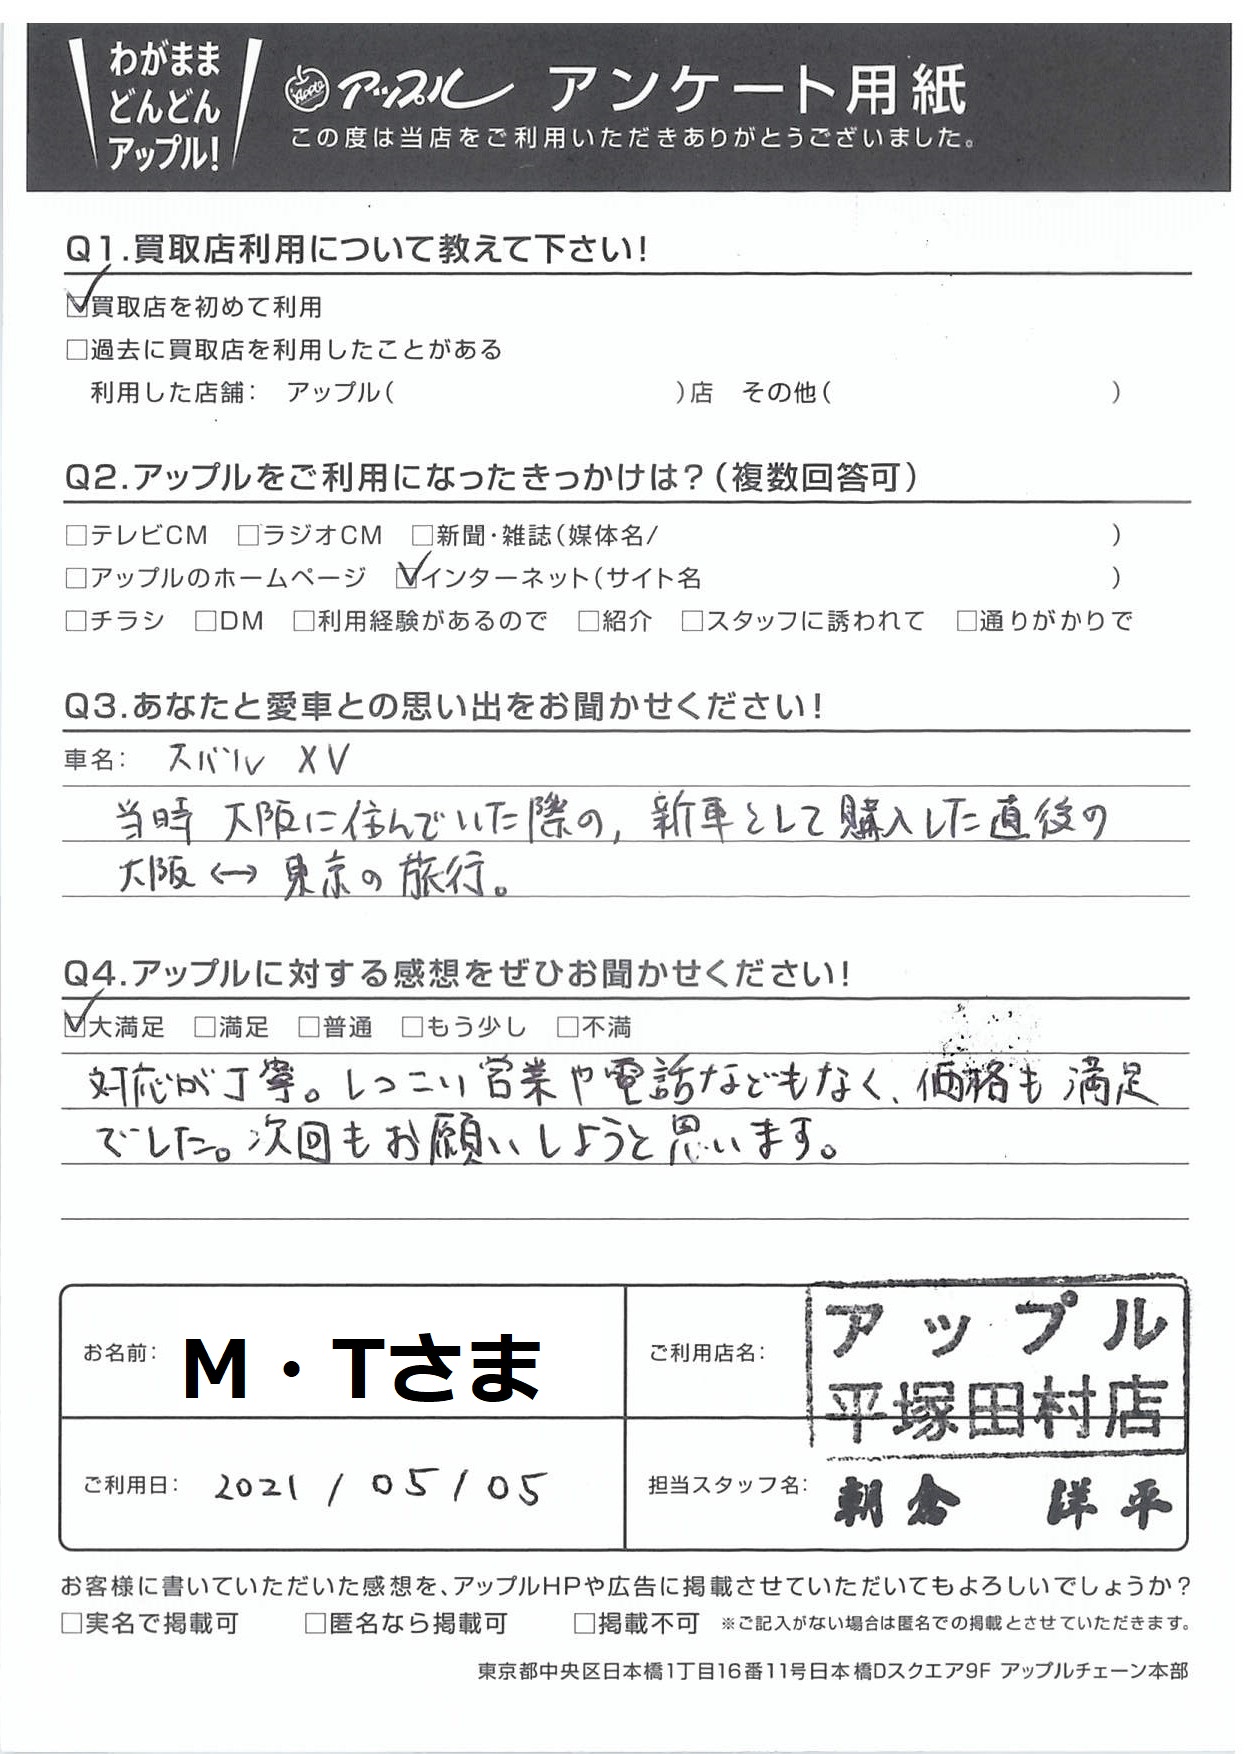 わがまま
どんどん
アップル!
Apple アップル アンケート用紙
この度は当店をご利用いただきありがとうございました。
Q1.買取店利用について教えて下さい!
☑買取店を初めて利用
□過去に買取店を利用したことがある
利用した店舗: アップル( )店 その他( )
Q2.アップルをご利用になったきっかけは?(複数回答可)
□テレビCM □ラジオCM □新聞・雑誌(媒体名/ )
□アップルのホームページ ☑インターネット(サイト名 )
□チラシ □DM □利用経験があるので □紹介 □スタッフに誘われて □通りがかりで
Q3.あなたと愛車との思い出をお聞かせください!
車名: スバル XV
当時 大阪に住んでいた際の, 新車として購入した直後の
大阪 ↔ 東京の旅行。
Q4.アップルに対する感想をぜひお聞かせください!
☑大満足 □満足 □普通 □もう少し □不満
対応が丁寧。しつこい営業や電話などもなく、価格も満足
でした。次回もお願いしようと思います。
お名前: M・Tさま
ご利用店名: アップル
平塚田村店
ご利用日: 2021/05/05
担当スタッフ名: 朝倉 洋平
お客様に書いていただいた感想を、アップルHPや広告に掲載させていただいてもよろしいでしょうか?
□実名で掲載可 □匿名なら掲載可 □掲載不可 ※ご記入がない場合は匿名での掲載とさせていただきます。
東京都中央区日本橋1丁目16番11号日本橋Dスクエア9F アップルチェーン本部